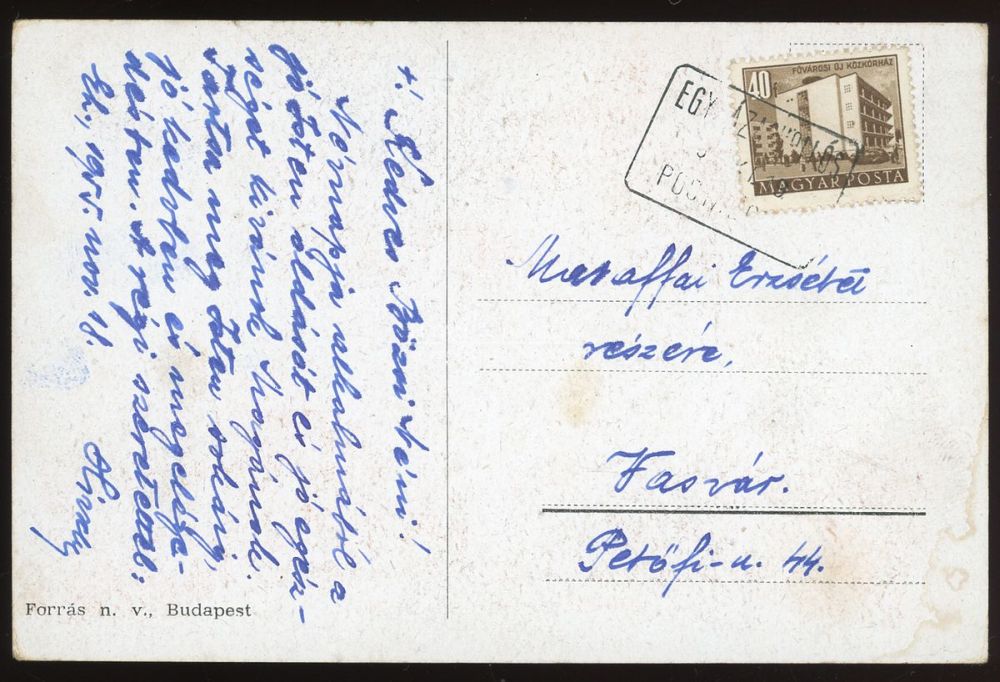 +! Kedves Bözsi Néni!
Névnapja alkalmából a
jó Isten áldását és jó egész-
séget kívánok Magának.
Tartsa meg Isten sokáig,
jó kedvben és megelége-
désben. A régi szeretettel:
Eh., 1955. nov. 18.
Forrás n. v., Budapest
40f
FŐVÁROSI ÚJ KÖZKÓRHÁZ
MAGYAR POSTA
EGYHÁZASHOLLÓS
Erzsébet
részére,
Vasvár.
Petőfi-u. 44.